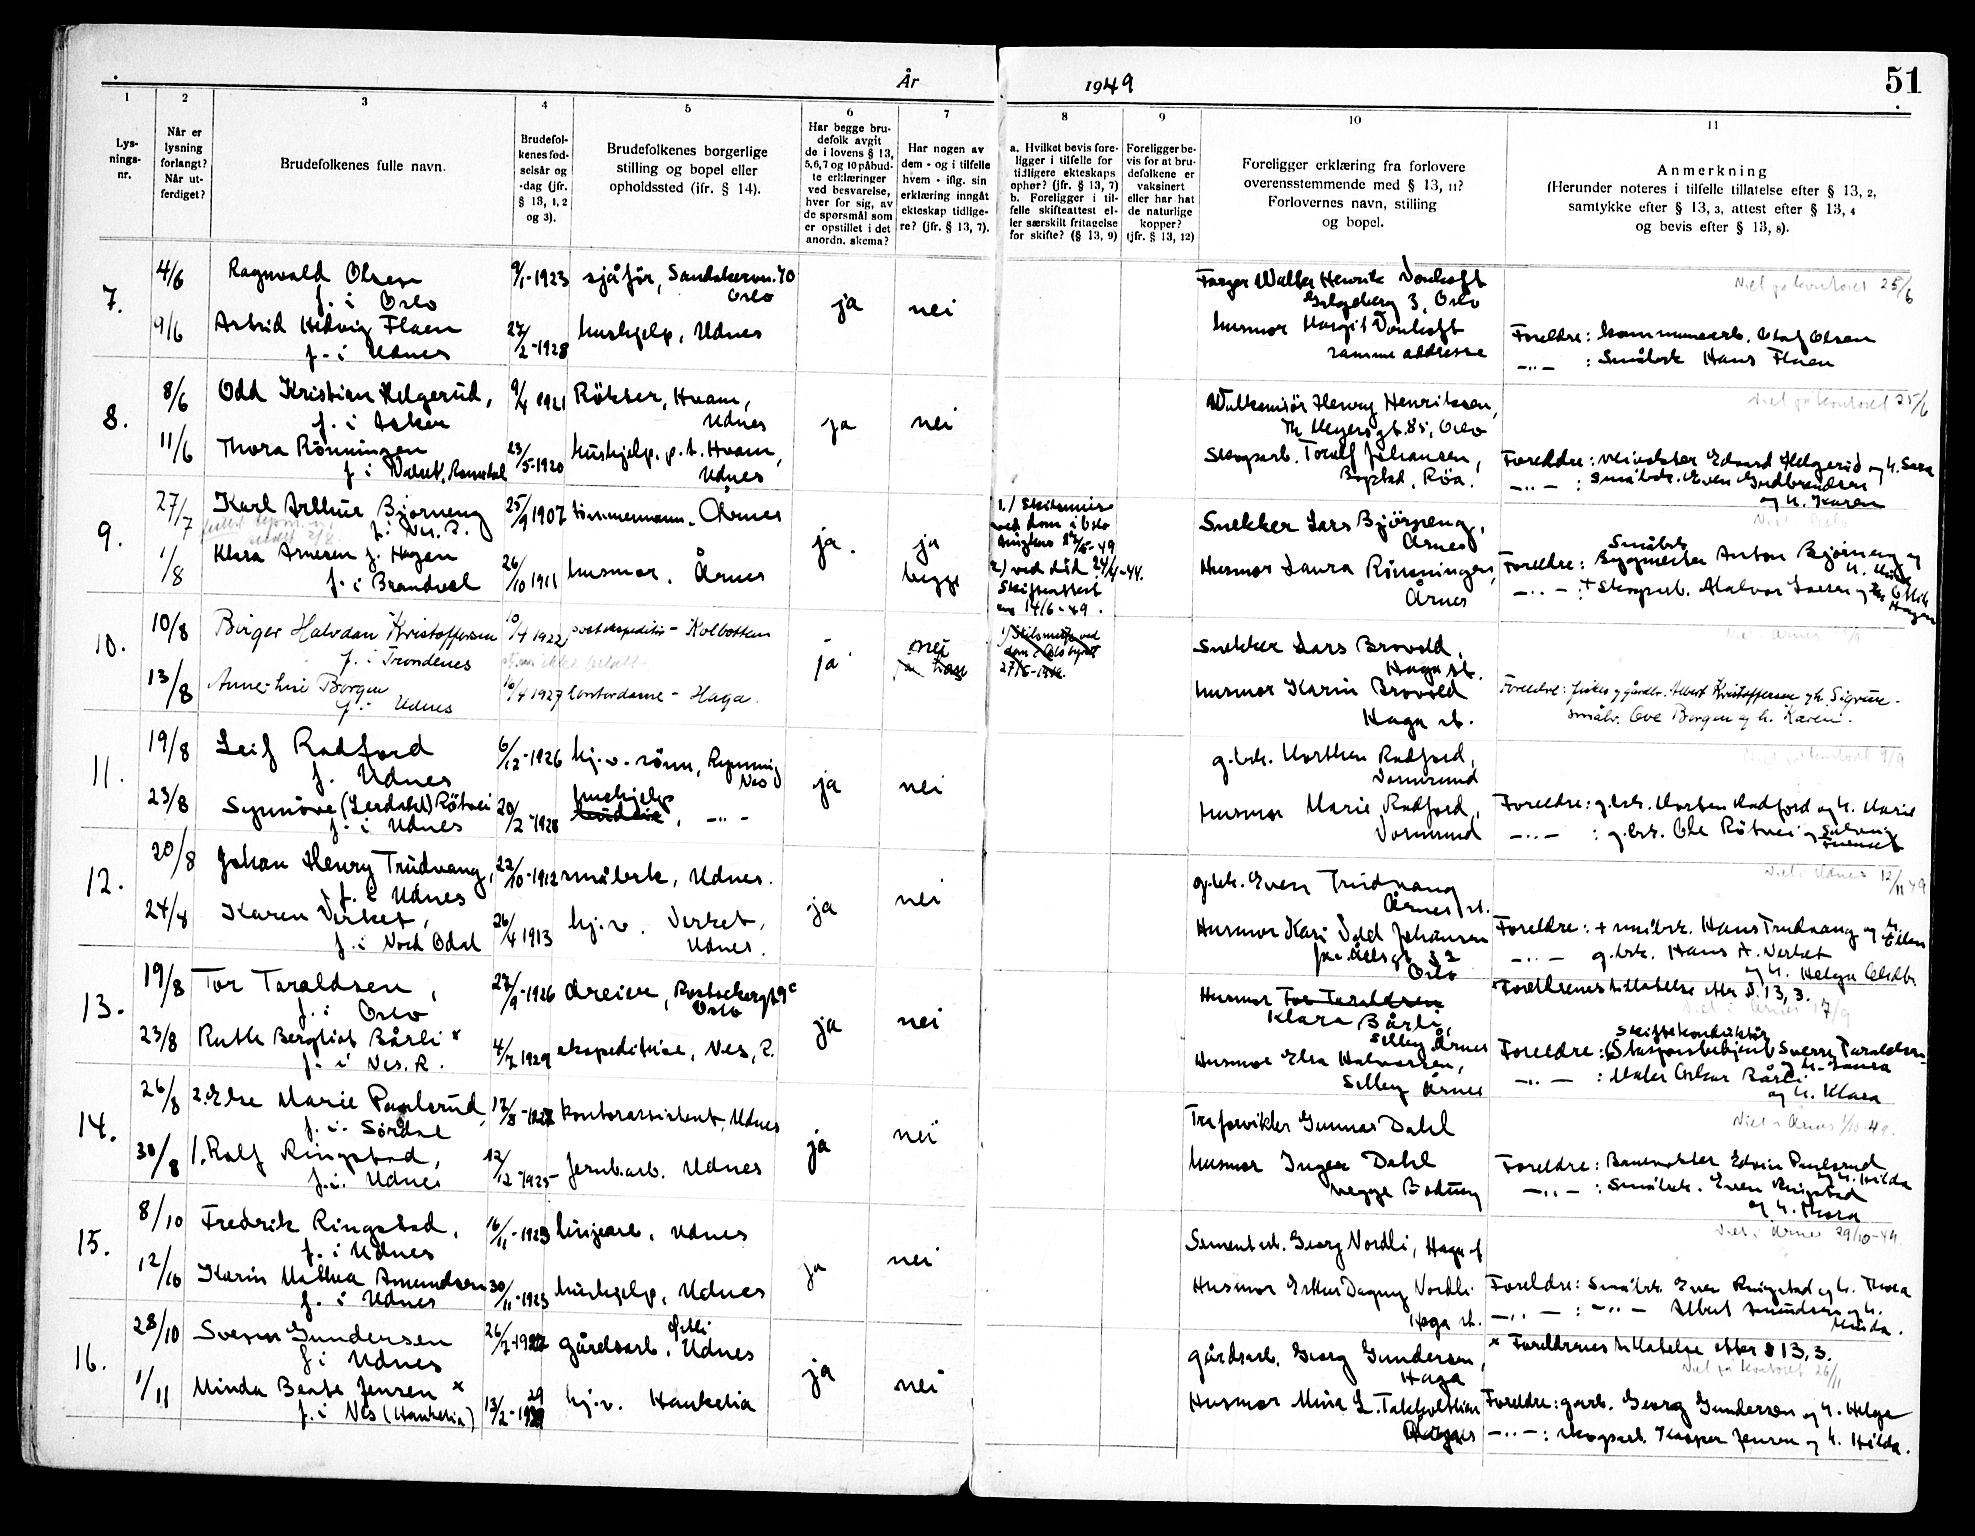 År 1949
51
1
2
3
4
5
6
7
8
9
10
11
Lys-
nings-
nr.
Når er
lysning
forlangt?
Når ut-
ferdiget?
Brudefolkenes fulle navn.
Brudefol-
kenes fød-
selsår og
-dag (jfr.
§ 13, 1, 2
og 3).
Brudefolkenes borgerlige
stilling og bopel eller
opholdssted (ifr. § 14).
Har begge bru-
defolk avgit
de i lovens § 13,
5,6,7 og 10 påbud-
te erklæringer
ved besvarelse,
hver for sig, av
de spørsmål som
er opstillet i det
anordn. skema?
Har nogen av
dem - og i tilfelle
hvem - iflg. sin
erklæring inngåt
ekteskap tidlige-
re? (jfr. § 13, 7).
a. Hvilket bevis fore-
ligger i tilfelle for
tidligere ekteskaps
ophør? (jfr. § 13, 7)
b. Foreligger i til-
felle skifteattest el-
ler særskilt fritagelse
for skifte? (§ 13, 9)
Foreligger be-
vis for at bru-
defolkene er
vaksinert
eller har hat
de naturlige
kopper?
(jfr. § 13, 12)
Foreligger erklæring fra forlovere
overensstemmende med § 13, 11?
Forlovernes navn, stilling
og bopel.
Anmerkning
(Herunder noteres i tilfelle tillatelse efter § 13, 2,
samtykke efter § 13, 3, attest efter § 13, 4
og bevis efter § 13, 8).
7.
4/6 Ragnvald Olsen 9/1-1923 sjåfør, Sandakervn. 70
f. i Oslo Oslo
9/6 Astrid Hedvig Flaen 27/2-1928 hushjelp, Udnes
f. i Udnes
ja nei
Walter Henrik
3, Oslo
husmor Margit
samme addresse
25/6
Foreldre: kommunearb. Olaf Olsen
—"— : Småbrk Hans Flaen
8.
8/6 Odd Kristian Helgerud, 9/4 1921 Røkter, Hvam,
f. i Asker Udnes
11/6 Thora Rönningen 23/5-1920 hushjelp. p.t. Hvam,
f. i Udnes
ja nei
Henry Henriksen,
Th. Meyersgt. 85, Oslo
Skogsarb. Toralf Johansen,
Bogstad, Røa.
25/6
Foreldre: Edvard Helgerud og h. Sara
—"— : Småbrk. Even Gudbrandsen
og h. Karen
9.
27/7 Karl Arthur Bjørneng 25/9 1907 tømmermann, Årnes
f. i Nes. R.
1/8 Klara Arnesen f. Hagen 26/10 1911 husmor, Årnes
f. i Brandval
ja. ja
begge
1.) Skilsmisse
ved dom i Oslo
5-49
2) ved död 24/4-44.
Skifteattest
14/6-49.
Snekker Lars Bjørneng,
Årnes
Husmor Laura Rönningen,
Årnes
Småbrk
Foreldre: Byggmester Anton Bjørneng og
—"— : + skogsarb. Halvor Larsen og
Hagen
10.
10/8 Birger Halvdan Kristoffersen 10/4 1922, postekspeditör - Kolbotten
f. i Trondenes
13/8 Anne-Lise Borgen 16/4 1927 kontordame - Haga.
f. i Udnes
ja nei
Snekker Lars Brovold,
Haga st.
husmor Karin Brovold
Haga st.
Foreldre: fisker og gårdbr. Albert Kristoffersen og h. Sigrun.
småbr. Ove Borgen og h. Karen.
11.
19/8 Leif Rudfjord 6/12-1926 hj.v. sönn,
f. i Udnes Nes
23/8 Synnöve (Lerdahl) Rötnei 20/2-1928 hushjelp, —"—
f. i Udnes
ja nei
g.brk. Morthen Rudfjord,
Vormsund
husmor Marie Rudfjord,
Vormsund
9/9
Foreldre: g.brk. Morten Rudfjord og h. Marie
—"— : g.brk. Ole Rötnei og Solveig
12.
20/8 Johan Henry Trudvang, 22/10-1912 småbrk, Udnes.
f. i Udnes
24/8 Karen Verket, 26/4 1913 hj.v. Verket,
f. i Nord Odal Udnes.
ja nei
g.brk. Even Trudvang
Årnes st.
Husmor Kari Johansen
Oslo
Viet i Udnes 12/11 49
Foreldre: + småbrk. Hans Trudvang og h. Ellen
—"— g.brk. Hans A. Verket
og h. Helga
13.
19/8 Tor Taraldsen, 27/9-1926 dreier,
f. i Oslo Oslo
23/8 Ruth Bergliot Bårli x 4/2 1929 ekspeditrise, Nes, R.
f. i Nes. R.
ja nei
Husmor Tor Taraldsen
Klara Bårli,
Årnes
Husmor Elsa Halvorsen,
Årnes
x Foreldrenes tillatelse etter § 13, 3.
17/9
Skiftekonduktør
Foreldre: (Stasjonsbetjent) Sverre Taraldsen
og h. Laura
—"— : Maler Oskar Bårli
og h. Klara
14.
26/8 2. Else Marie Paulsrud, kontorassistent, Udnes
f. i Sørdal
30/8 1. Rolf Ringstad, 12/12-1925 Jernb.arb. Udnes
f. i. Udnes
ja nei
Gunnar Dahl
husmor Inger Dahl
begge
Viet i Årnes 1/10-49.
Foreldre: Banevokter Edvin Paulsrud
og h. Hilda
—"— : Småbrk. Even Ringstad
og h. Thora
15.
8/10 Fredrik Ringstad, 16/11-1923 linjearb. Udnes
f. i Udnes
12/10 Karin Mathea Amundsen 30/11-1923 hushjelp, Udnes
f. i Udnes
ja nei
Sementarb. Georg Nordli, Haga st
Husmor Esther Dagny Nordli
Haga st.
Viet i Årnes 29/10-49.
Foreldre: Småbrk. Even Ringstad og h. Thora
—"— : —"— Albert Amundsen og h.
16.
28/10 Sverre Gundersen 26/7-19 gårdsarb. Udnes
f. i Udnes
1/11 Minda Beate Jensen x 13/2-1929 hj.v. Hankelia
f. i Nes (Hankelia)
ja nei
gårdsarb. Georg Gundersen,
Haga
Husmor Mina L.
x Foreldrenes tillatelse etter § 13, 3.
26/11
Foreldre: g.arb. Georg Gundersen og h. Helga
—"— : skogsarb. Kasper Jensen og h. Hilda.